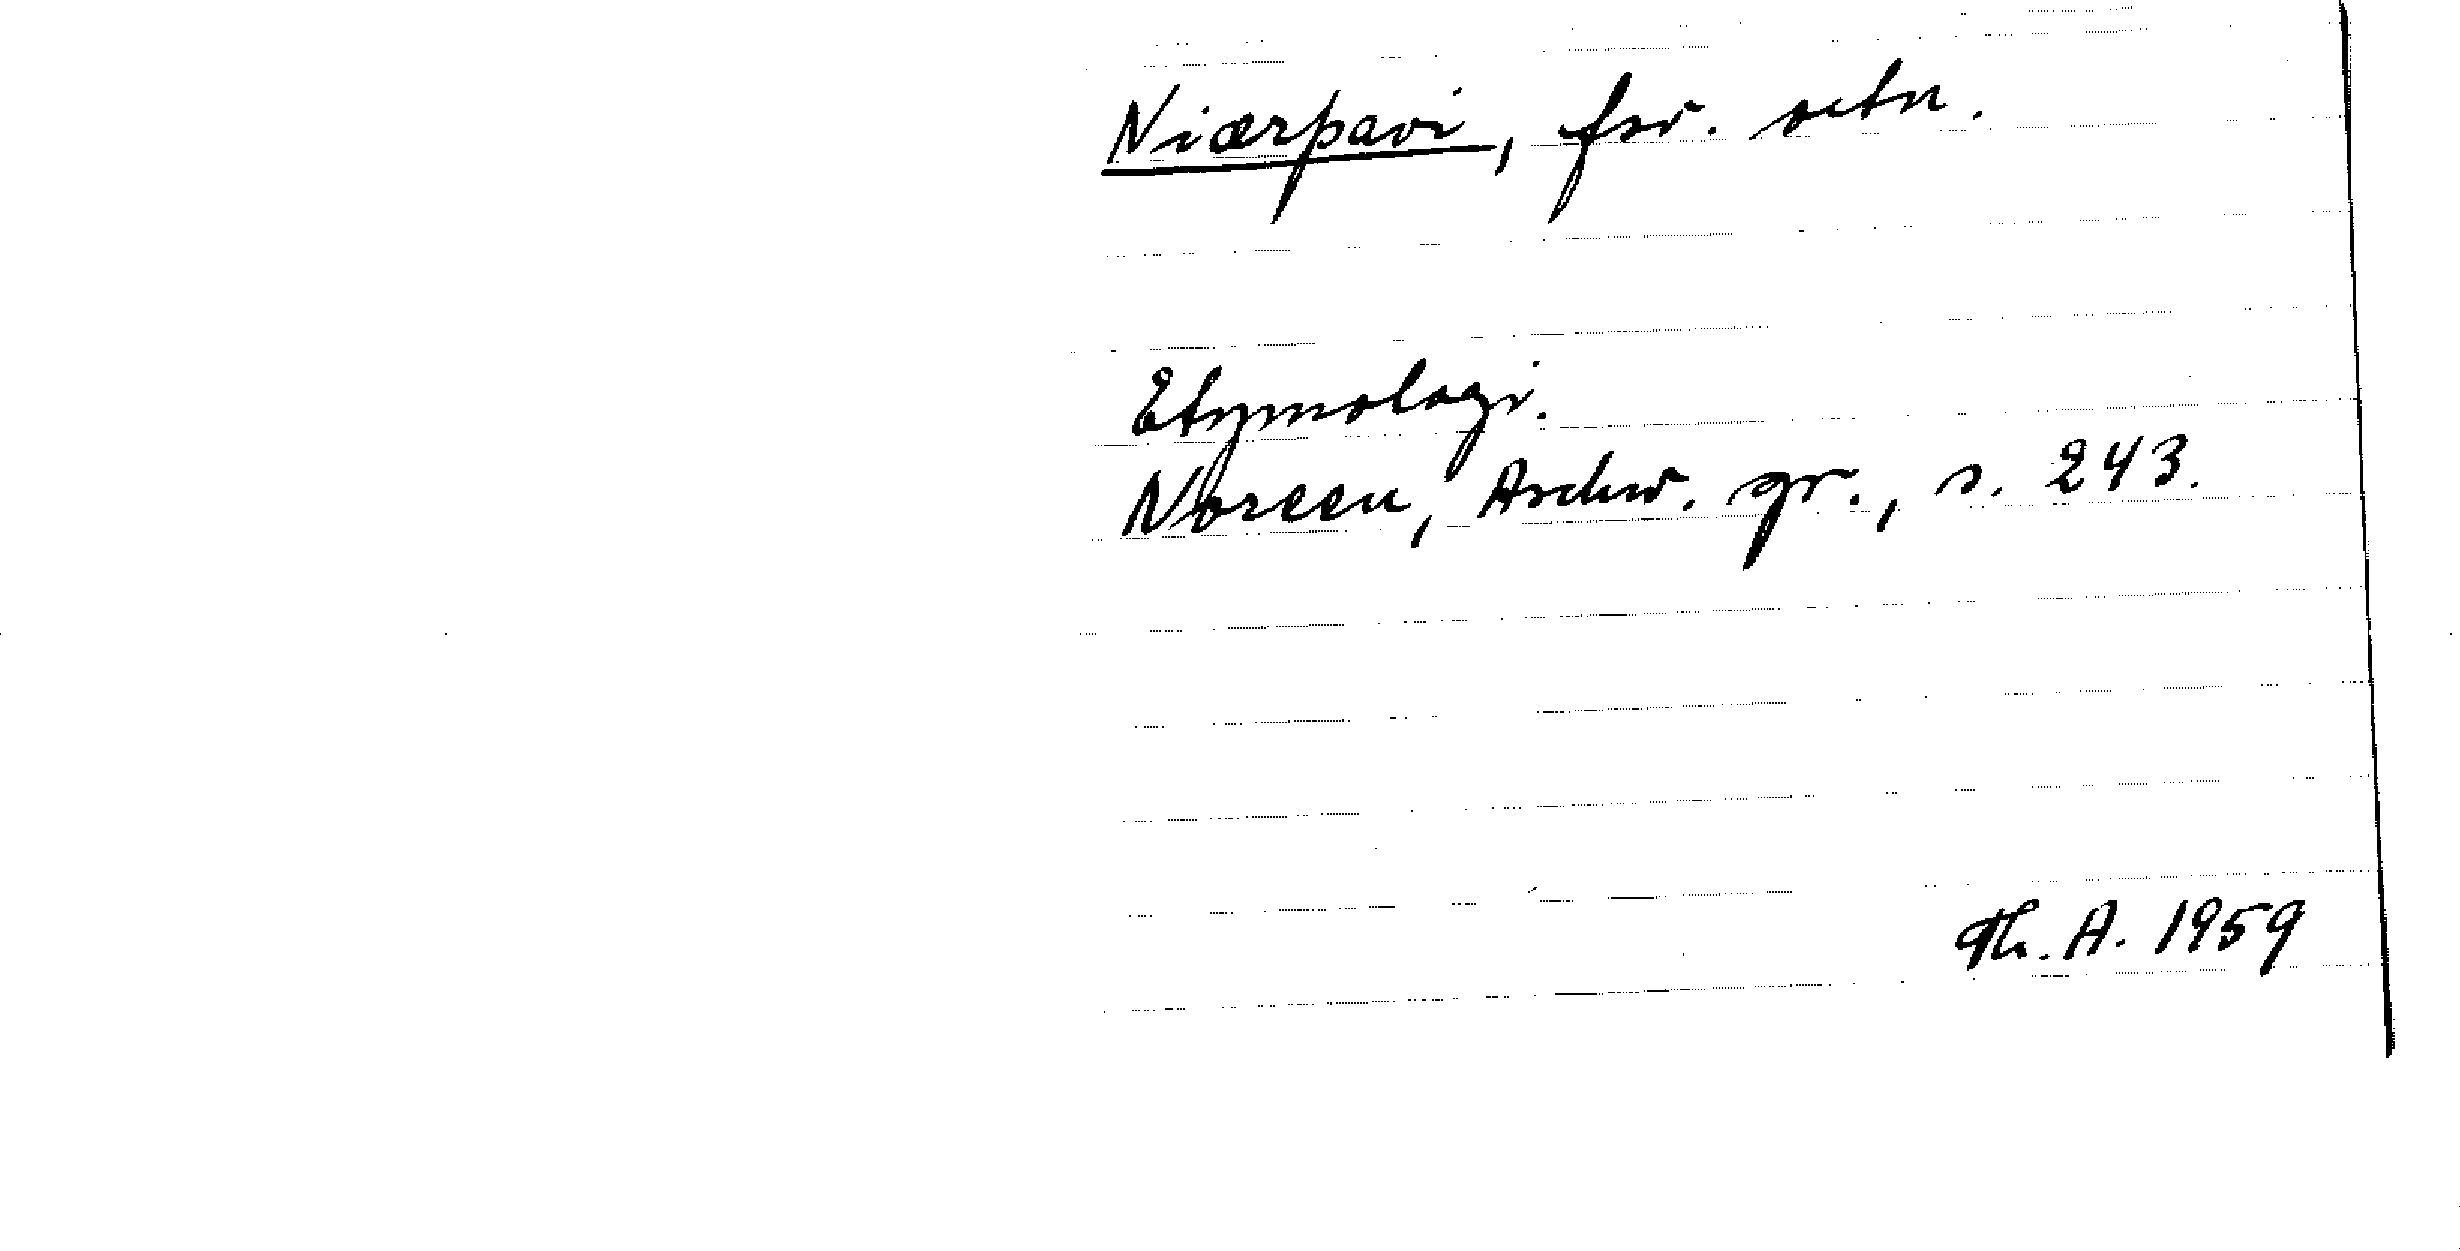 Niærþavi, fsv. ortn.
Etymologi.
Noreen, Aschw. gr., s. 243.
Th. A. 1959